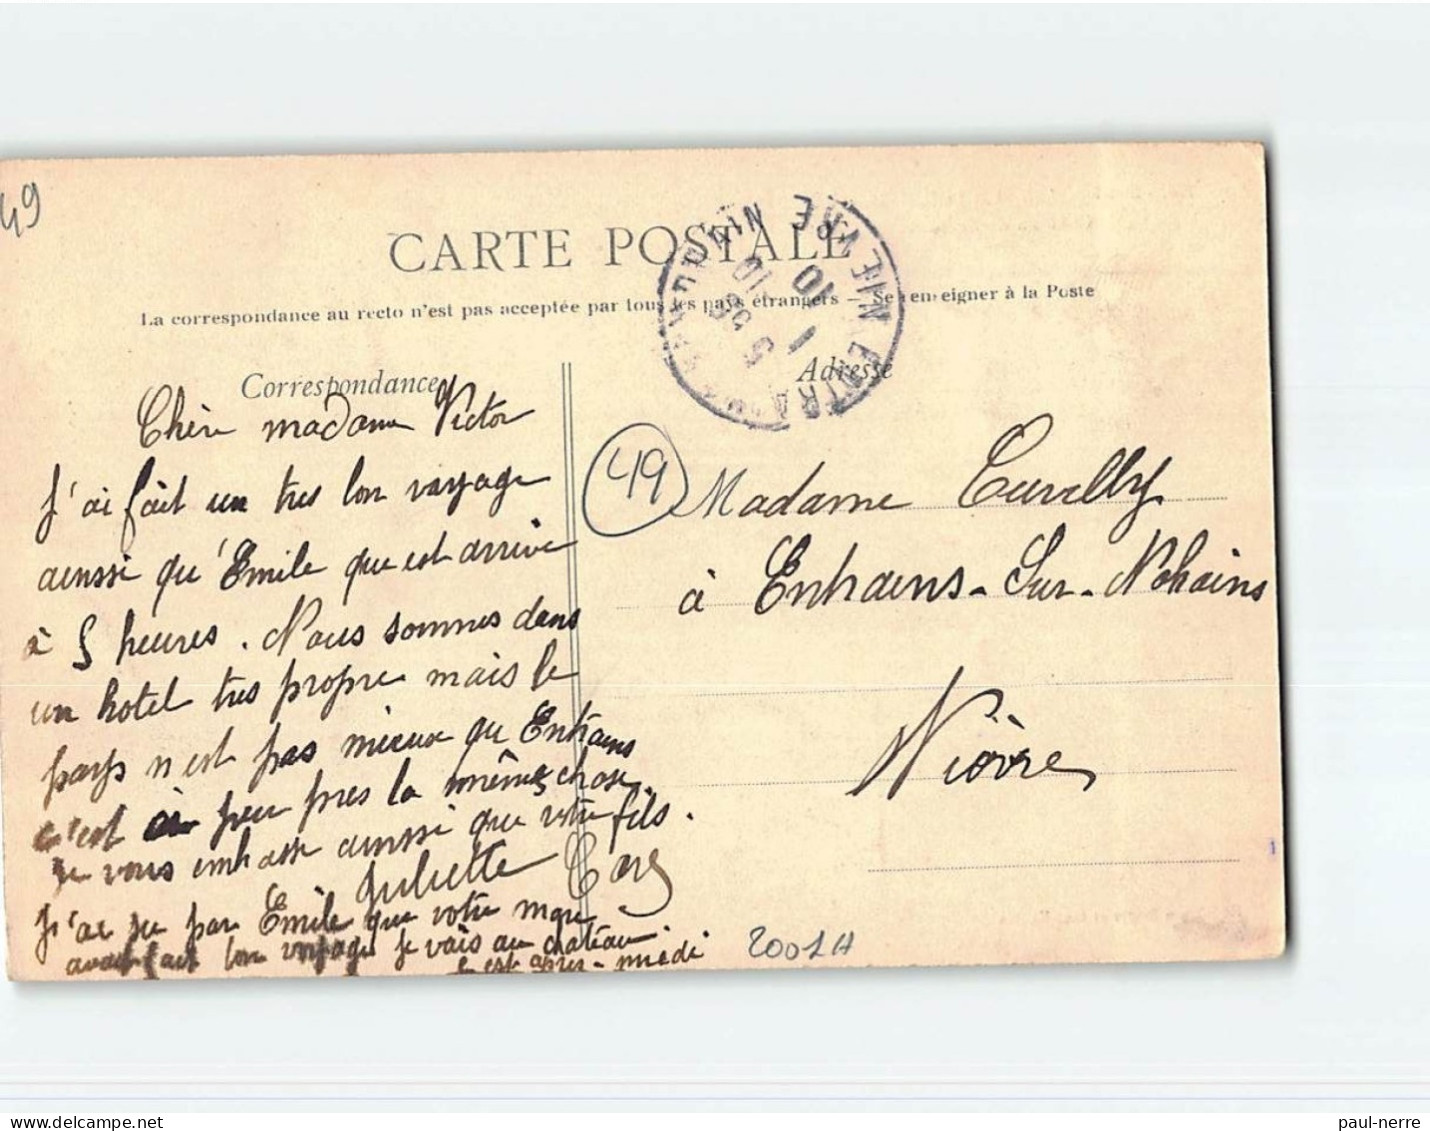 49
CARTE POSTALE
La correspondance au recto n'est pas acceptée par tous les pays étrangers — Se renseigner à la Poste
ENTRAINS NIEVRE
5 55
1 10
10
Correspondance
Adresse
Chère madame Victor
J'ai fait un tres bon voyage
aussi qu'Emile que est arrive
à 5 heures. Nous sommes dans
un hotel tres propre mais le
pays n'est pas mieux qu Entrains
c'est a peu pres la même chose
Je vous embrasse aussi que votre fils.
Juliette
J'ai su par Emile que votre
avait fait bon voyage je vais au chateau
c'est apres-midi
49
Madame Cuvilly
à Entrains-Sur-Nohains
Nièvre
2001H
paul-nerre